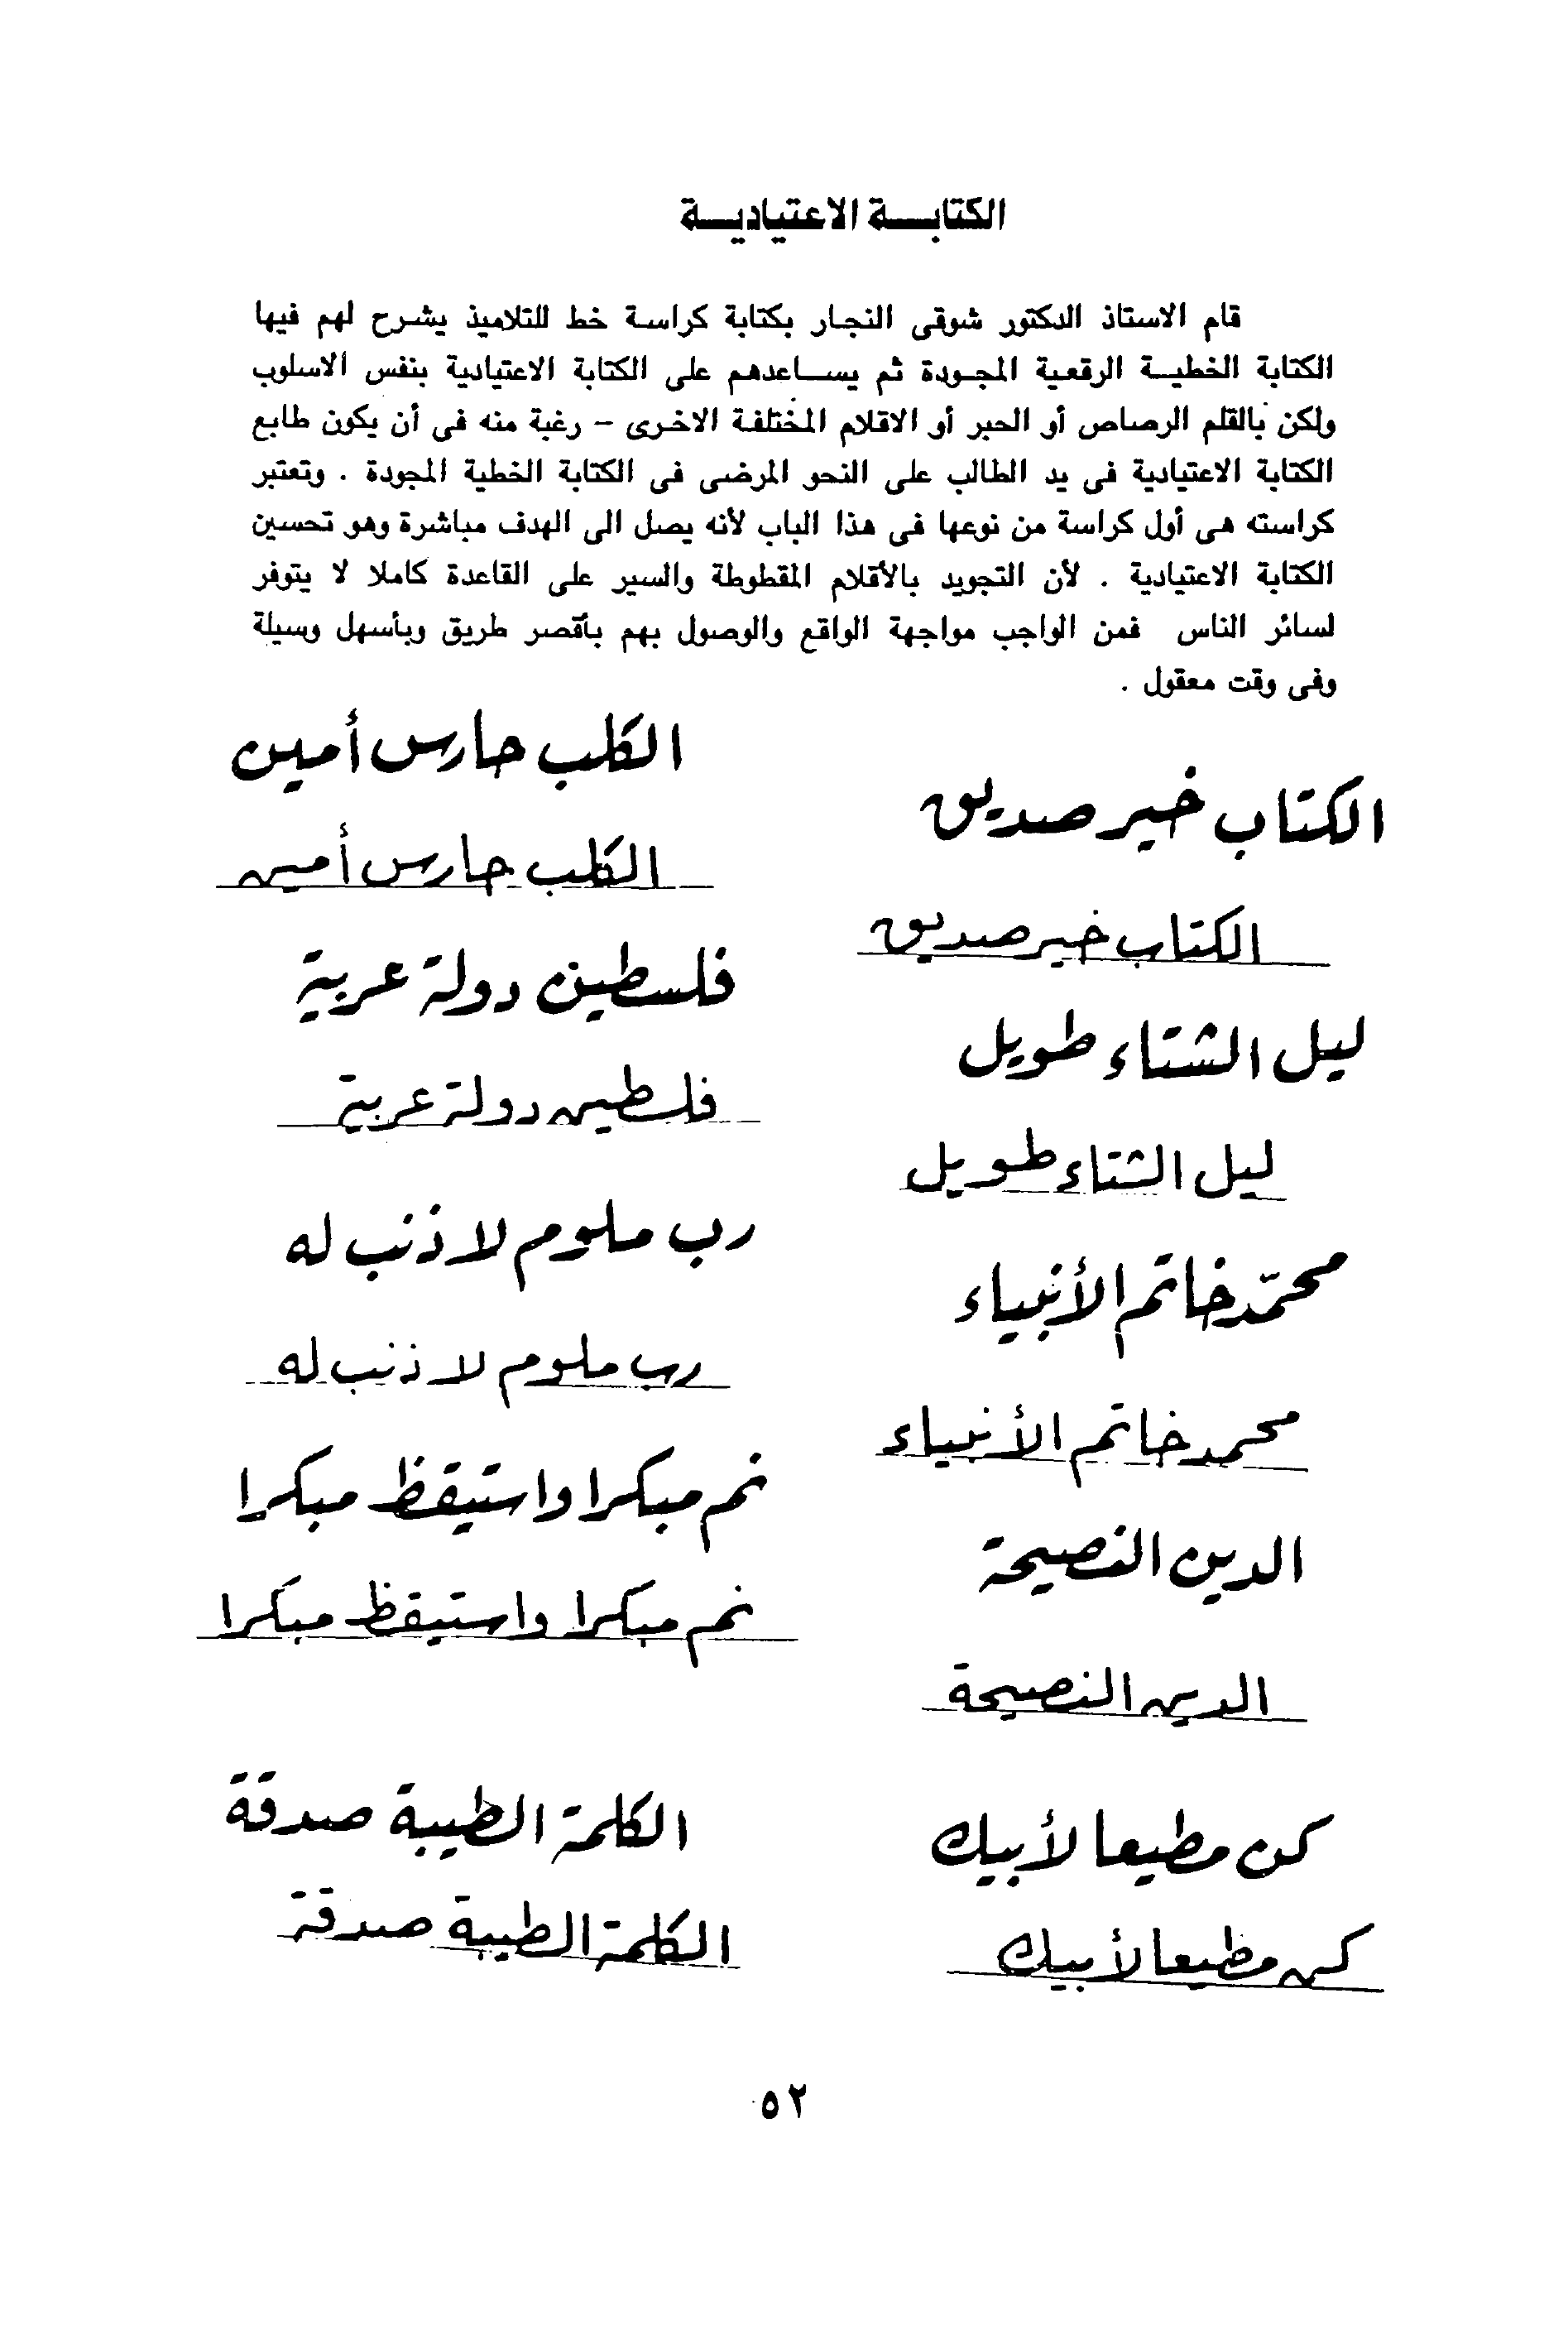 الكتابـــة الاعتياديـــة
قام الاستاذ الدكتور شوقى النجار بكتابة كراسة خط للتلاميذ يشرح لهم فيها
الكتابة الخطيـة الرقعية المجـودة ثم يسـاعدهم على الكتابة الاعتيادية بنفس الاسلوب
ولكن بالقلم الرصاص أو الحبر أو الاقلام المختلفة الاخرى – رغبة منه فى أن يكون طابع
الكتابة الاعتيادية فى يد الطالب على النحو المرضى فى الكتابة الخطية المجودة . وتعتبر
كراسته هى أول كراسة من نوعها فى هذا الباب لأنه يصل الى الهدف مباشرة وهو تحسين
الكتابة الاعتيادية . لأن التجويد بالأقلام المقطوطة والسير على القاعدة كاملا لا يتوفر
لسائر الناس فمن الواجب مواجهة الواقع والوصول بهم بأقصر طريق وبأسهل وسيلة
وفى وقت معقول .
الكتاب خير صديق
الكتاب خير صديق
ليل الشتاء طويل
ليل الشتاء طويل
محمّد خاتم الأنبياء
محمد خاتم الأنبياء
الدين النصيحة
الدين النصيحة
كن مطيعا لأبيك
كن مطيعا لأبيك
الكلب حارس أمين
الكلب حارس أمين
فلسطين دولة عربية
فلسطين دولة عربية
رب ملوم لا ذنب له
رب ملوم لا ذنب له
نم مبكرا واستيقظ مبكرا
نم مبكرا واستيقظ مبكرا
الكلمة الطيبة صدقة
الكلمة الطيبة صدقة
٥٢